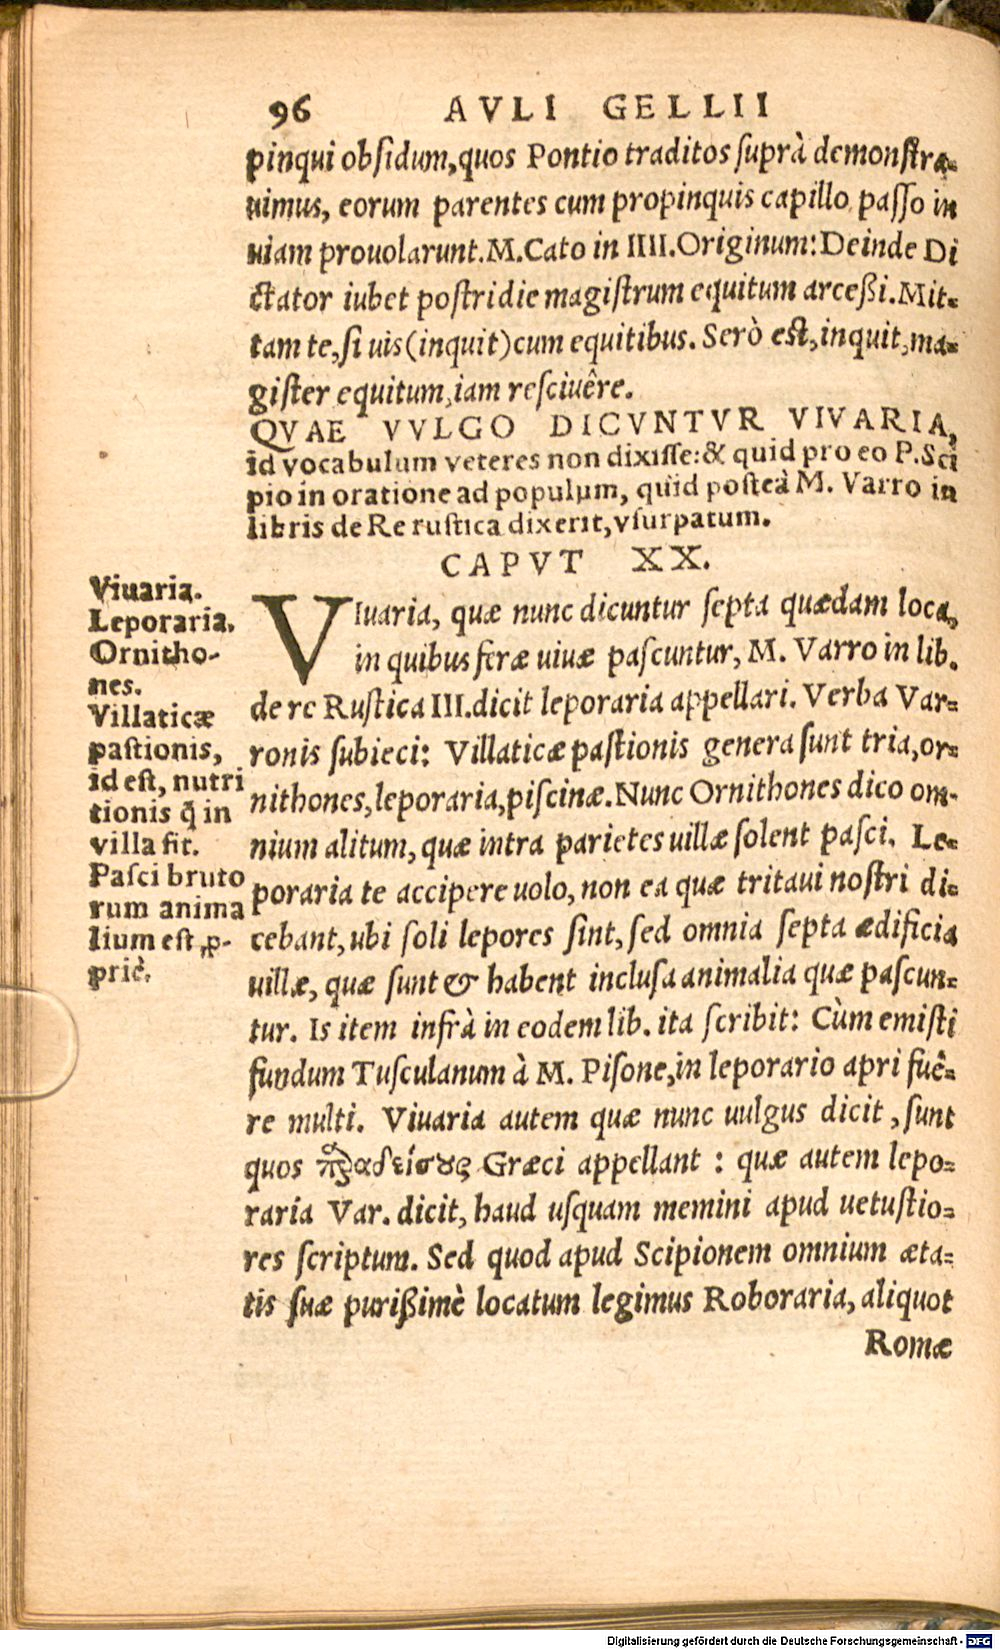 96 AVLI GELLII
pinqui obsidum, quos Pontio traditos suprà demonstra-
uimus, eorum parentes cum propinquis capillo passo in
uiam prouolarunt. M. Cato in IIII. Originum: Deinde Di
ctator iubet postridie magistrum equitum arceßi. Mit-
tam te, si uis (inquit) cum equitibus. Serò est, inquit, ma-
gister equitum, iam resciuêre.
QVAE VVLGO DICVNTVR VIVARIA,
id vocabulum veteres non dixisse: & quid pro eo P. Sci
pio in oratione ad populum, quid posteà M. Varro in
libris de Re rustica dixerit, vsurpatum.
CAPVT XX.
VIuaria, quæ nunc dicuntur septa quædam loca,
in quibus feræ uiuæ pascuntur, M. Varro in lib.
de re Rustica III. dicit leporaria appellari. Verba Var-
ronis subieci: Villaticæ pastionis genera sunt tria, or-
nithones, leporaria, piscinæ. Nunc Ornithones dico om-
nium alitum, quæ intra parietes uillæ solent pasci. Le-
poraria te accipere uolo, non ea quæ tritaui nostri di-
cebant, ubi soli lepores sint, sed omnia septa ædificia
uillæ, quæ sunt & habent inclusa animalia quæ pascun-
tur. Is item infrà in eodem lib. ita scribit: Cùm emisti
fundum Tusculanum à M. Pisone, in leporario apri fuê-
re multi. Viuaria autem quæ nunc uulgus dicit, sunt
quos παραδείσους Græci appellant: quæ autem lepo-
raria Var. dicit, haud usquam memini apud uetustio-
res scriptum. Sed quod apud Scipionem omnium æta-
tis suæ purißimè locatum legimus Roboraria, aliquot
Romæ
Viuaria.
Leporaria.
Ornitho-
nes.
Villaticæ
pastionis,
id est, nutri
tionis q̃ in
villa fit.
Pasci bruto
rum anima
lium est ꝓ-
priè.
Digitalisierung gefördert durch die Deutsche Forschungsgemeinschaft - DFG